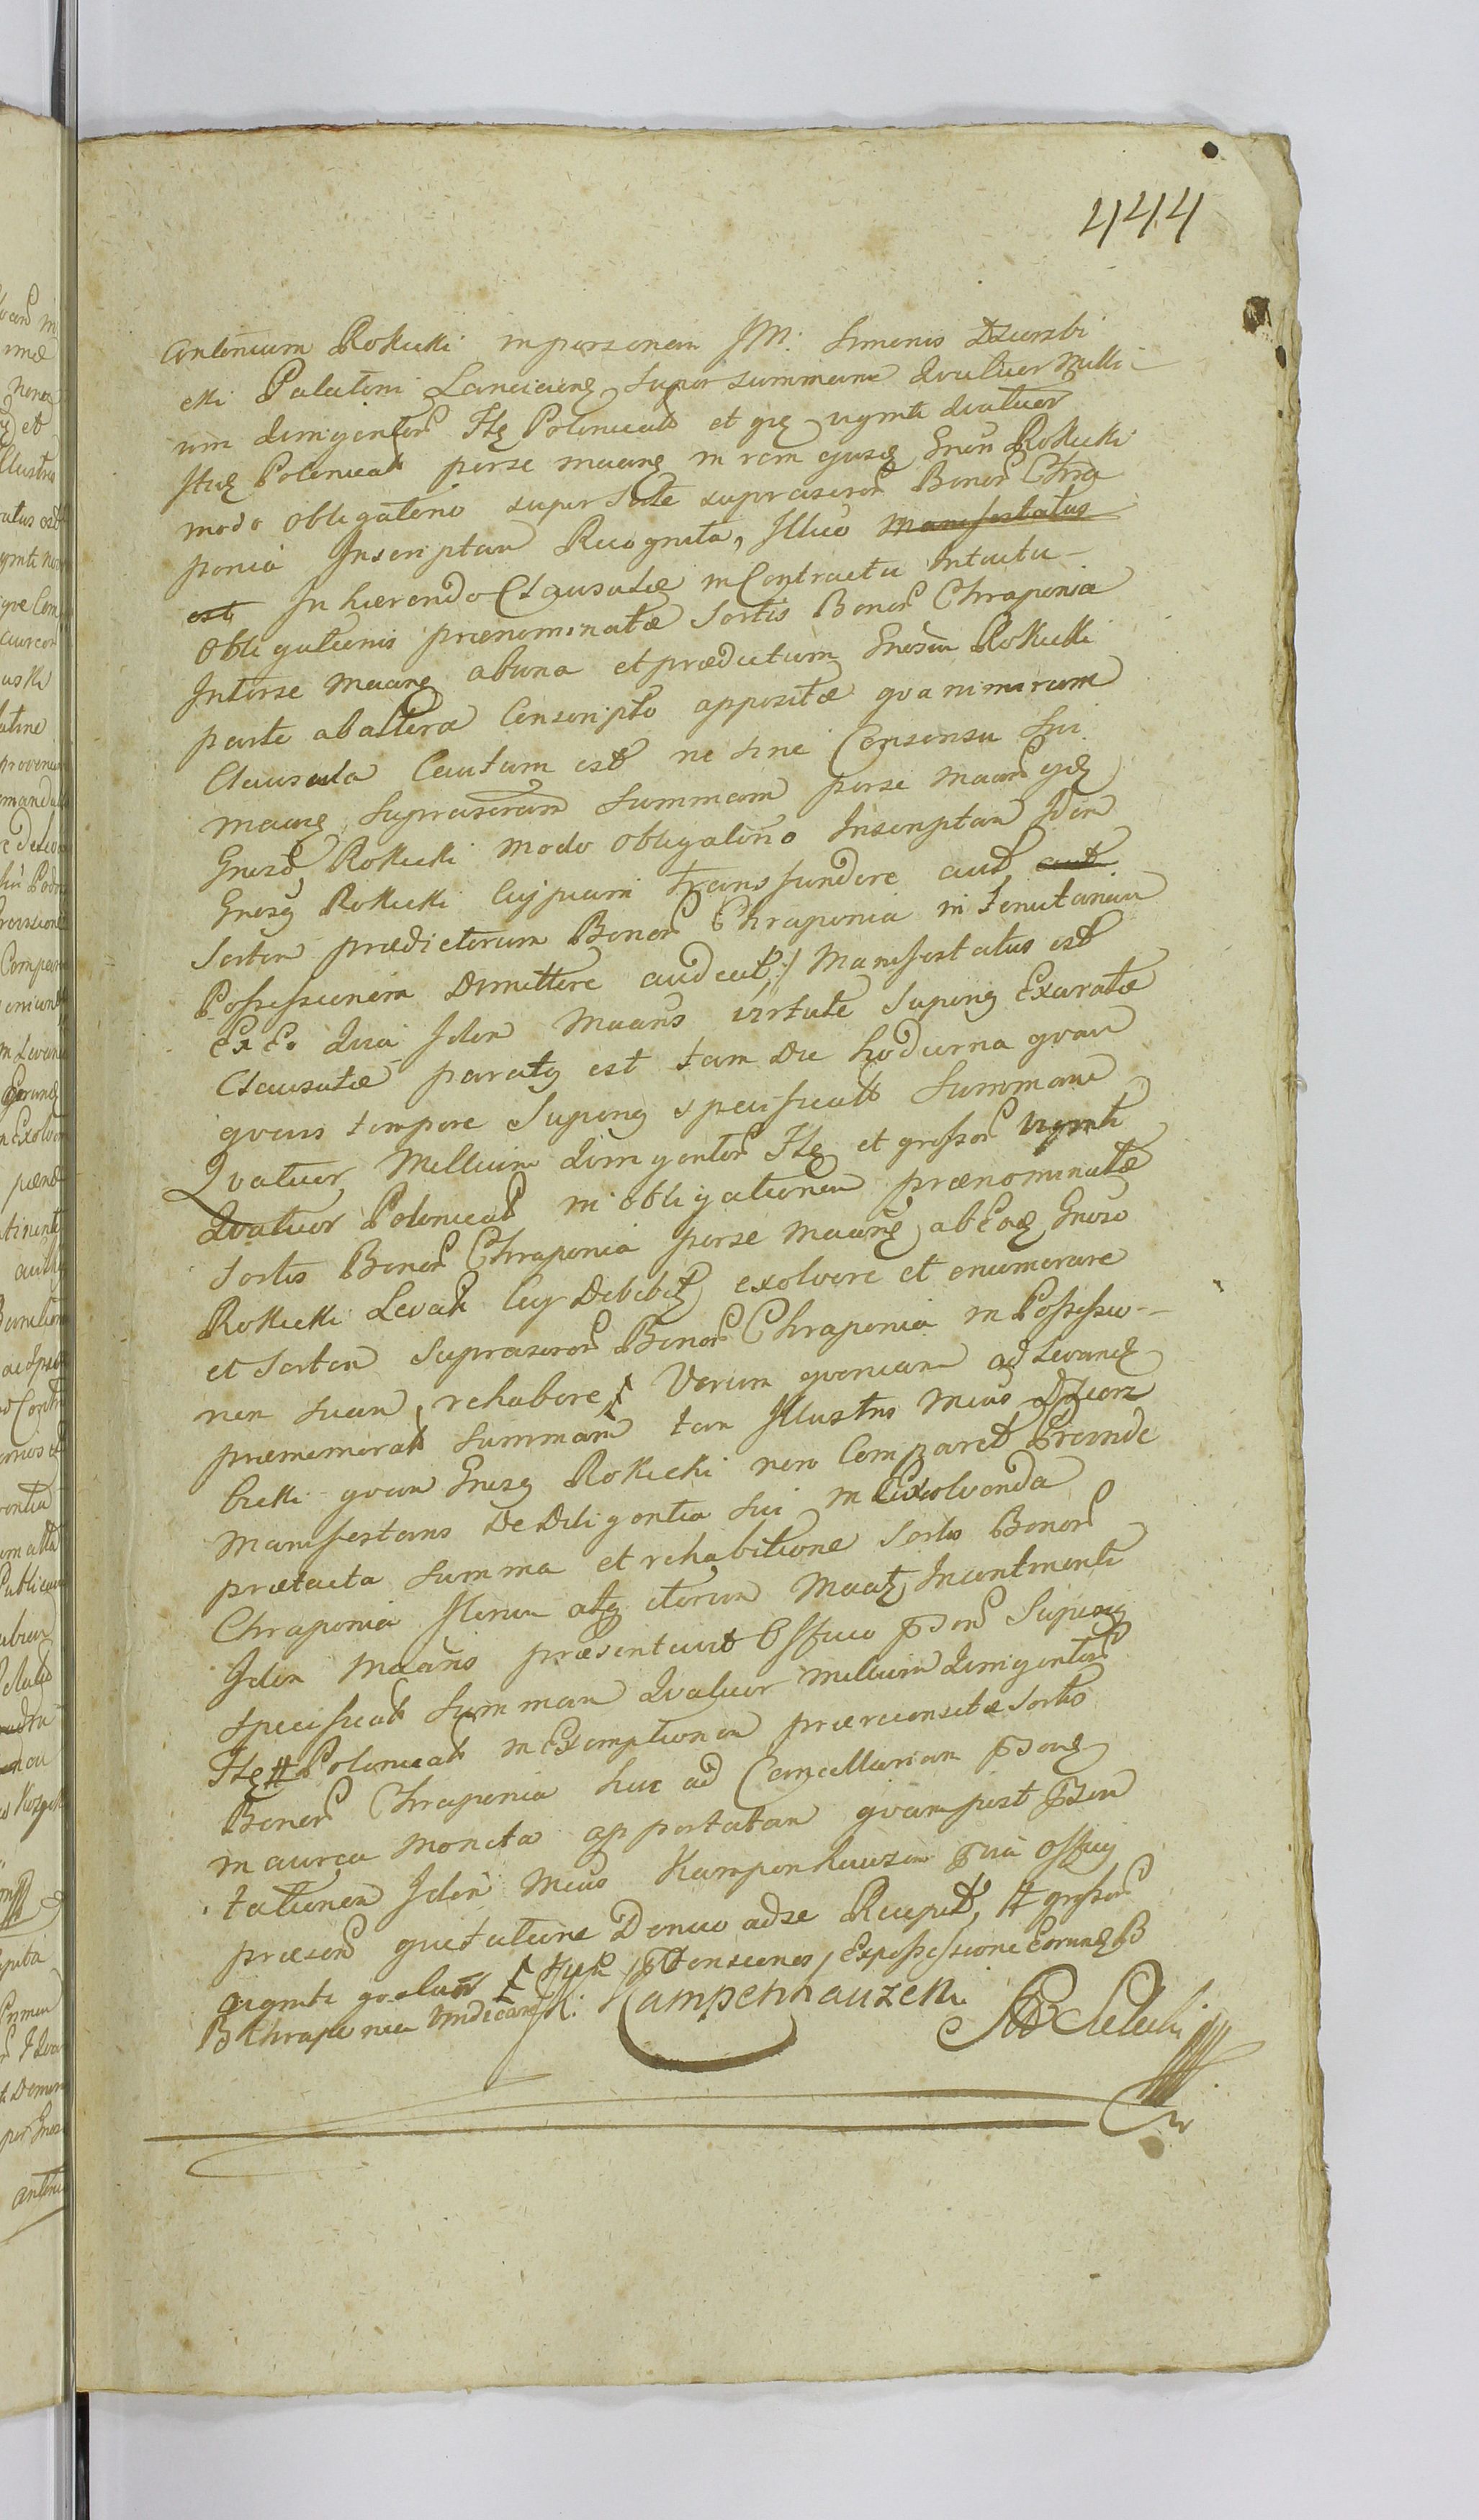 444
Antonium Rokicki in personam JM: Simonis Dzierzbi
cki Palatini Lanciciens super summam Quatuor Milli-
um Quingentor Flg Polonicali et grs viginti Quatuor
Itidg Polonicali per se Maang in rem ejusdg Gnosi Rokicki
modo obligatorio super Sorte suprascror Bonor Chra
ponia Inscriptam Recognita, Illico Manifestatus
est Inhaerendo Clausulae in Contractu Intuitu
Obligationis praenominatae Sortis Bonor Chraponia
Inter se Maang ab una et praedictum Gnosum Rokicki
parte ab altera Conscripto appositae qva nimirum
Clausula Cautum est ne sine Consensu Sui
Maang, suprascram Summam per se Maang gdg
Gnoso Rokicki modo obligatorio Inscriptam Idem
Gnosg Rokicki Cuipiam transfundere aut aut
Sortem praedictorum Bonor Chraponia in tenutariam
Possessionem Dimittere audeat, Manifestatus est
Ex Eo Qvia Idem Maans virtute Superg Exaratae
Clausulae paratg est tam Die hodierna qvam
qvovis tempore Superg specificatt Summam
Qvatuor Millium Qvingentor Flg et grossor viginti
Qvatuor Polonicalt in obligationem praenominatae
Sortis Bonor Chraponia per se Maang ab Eodg Gnoso
Rokicki Levatt Cui Debebitg exolvere et enumerare
et Sortem Suprascror Bonor Chraponia in Possessio-
nem suam rehabere Verum qvoniam ad Levandg
praememorat Summam tam Illustris Mcus Dzierz
bicki qvam Gnosg Rokicki non Comparet Proinde
Manifestans De Diligentia Sui in Exolvenda
praetacta Summa et rehabitione Sortis Bonor
Chraponia Iterum atg iterum Maatg, Incontinenti
Idem Maans praesentavit Officio Psenti Superg
Specificatt Summam Qvatuor Millium Qvingentor
Flg # Polonicalt in Exemptionem praerecensitae Sortis
Bonor Chraponia huc ad Cancellariam Psendg
in aurea Moneta apportatam qvam post Psen
tationem Idem Mcus Kampenhauzen Pvia Officij
praesens qvietatione Denuo ad se Recepit, # grossor
vigniti qvatuor Ptensiones, Ex possessione Eorundg B
B Chraponia vindicandi: Kampenhauzen